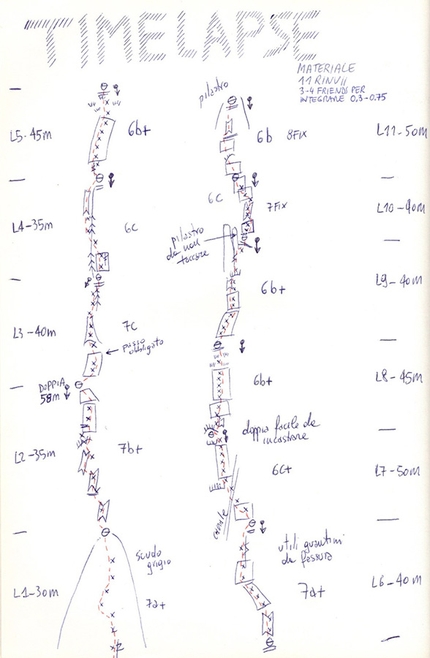 TIMELAPSE
MATERIALE
11 RINVII
3-4 FRIENDS PER
INTEGRARE 0.3-0.75
L5-45m
6b+
L4-35m
6c
L3-40m
7c
passo obbligato
DOPPIA
58m
L2-35m
7b+
L1-30m
scudo
grigio
7a+
pilastro
6b
8FIX
L11-50m
6c
7FIX
L10-40m
pilastro
da non
toccare
6b+
L9-40m
6b+
L8-45m
doppia facile da
incastrare
6c+
L7-50m
canale
utili guantini
da fessura
7a+
L6-40m